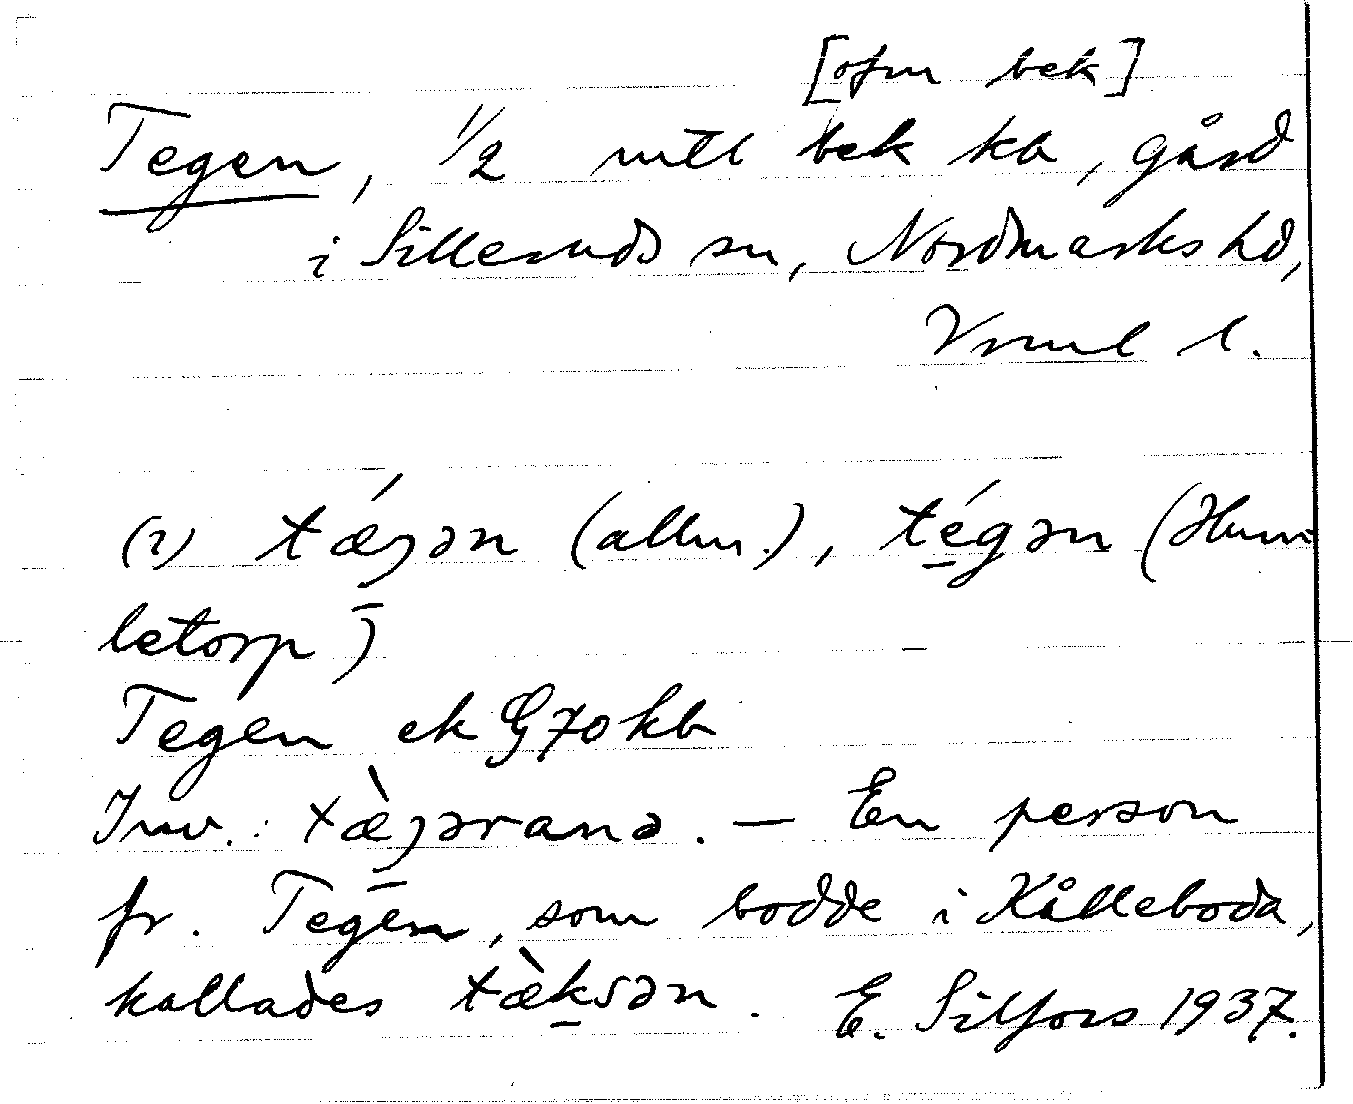 [ofm bek]
Tegen, 1/2 mtl bek kb, gård
i Silleruds sn, Nordmarks hd,
Vrml l.
(?) tǽgən (allm.), tégən (Hum-
letorp)
Tegen ek G70kb
Inv.: tæ̀gərana. — En person
fr. Tegen, som bodde i Kålleboda,
kallades tæ̀ksən. E. Silfors 1937.